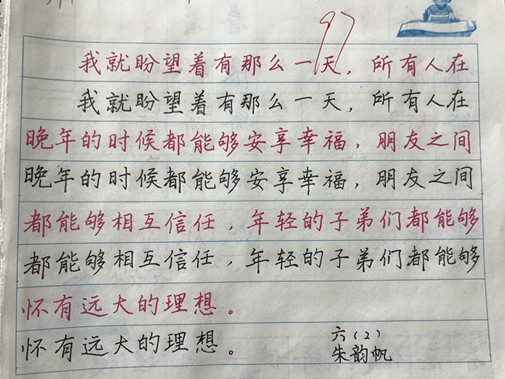 97
我就盼望着有那么一天，所有人在
我就盼望着有那么一天，所有人在
晚年的时候都能够安享幸福，朋友之间
晚年的时候都能够安享幸福，朋友之间
都能够相互信任，年轻的子弟们都能够
都能够相互信任，年轻的子弟们都能够
怀有远大的理想。
怀有远大的理想。
六(2)
朱韵帆